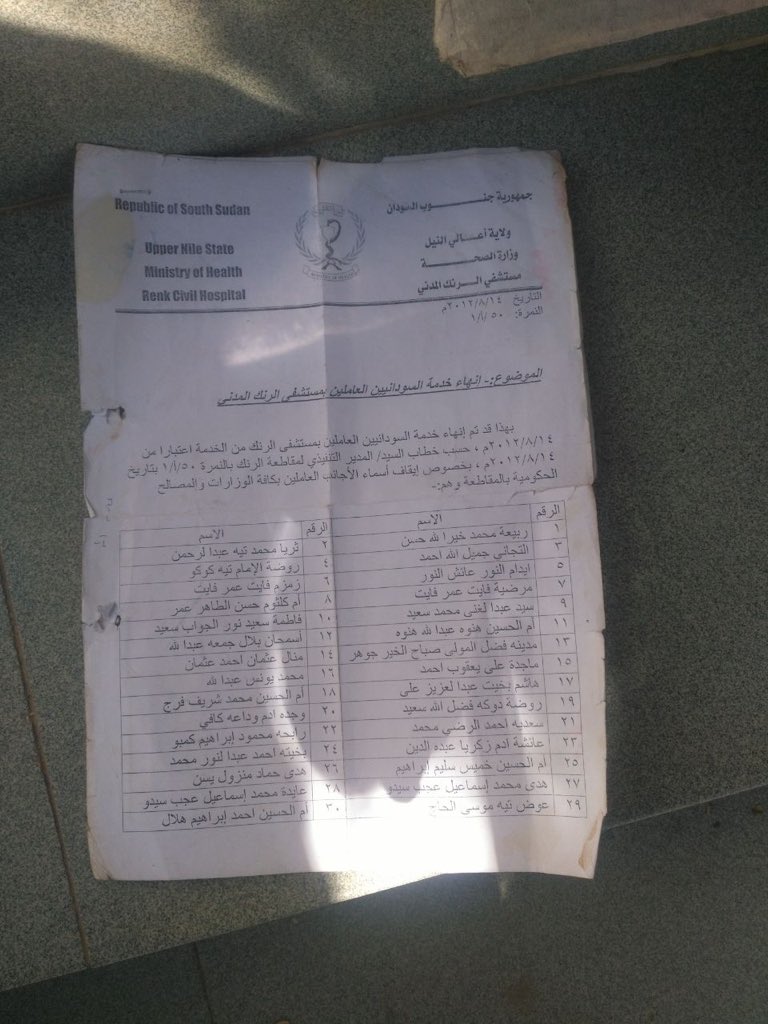 Republic of South Sudan
Upper Nile State
Ministry of Health
Renk Civil Hospital
جمهورية جنوب السودان
ولاية أعالي النيل
وزارة الصحة
مستشفي الرنك المدني
التاريخ ٢٠١٢/٨/١٤م
النمرة: ٥٠/أ/١
الموضوع:- إنهاء خدمة السودانيين العاملين بمستشفى الرنك المدني
بهذا قد تم إنهاء خدمة السودانيين العاملين بمستشفى الرنك من الخدمة اعتبارا من
٢٠١٢/٨/١٤م ، حسب خطاب السيد/ المدير التنفيذي لمقاطعة الرنك بالنمرة ٥٠/أ/١ بتاريخ
٢٠١٢/٨/١٤م ، بخصوص ايقاف أسماء الأجانب العاملين بكافة الوزارات والمصالح
الحكومية بالمقاطعة وهم:-
الرقم الاسم الرقم الاسم
١ ربيعة محمد خيرا لله حسن ٢ ثريا محمد تيه عبدا لرحمن
٣ التجاني جميل الله احمد ٤ روضة الإمام تيه كوكو
٥ ايدام النور عائش النور ٦ زمزم فايت عمر فايت
٧ مرضية فايت عمر فايت ٨ ام كلثوم حسن الطاهر عمر
٩ سيد عبدا لغنى محمد سعيد ١٠ فاطمة سعيد نور الجواب سعيد
١١ أم الحسين هنوه عبدا لله هنوه ١٢ أسمحان بلال جمعه عبدا لله
١٣ مدينه فضل المولى صباح الخير جوهر ١٤ منال عثمان احمد عثمان
١٥ ماجدة على يعقوب احمد ١٦ محمد يونس عبدا لله
١٧ هاشم بخيت عبدا لعزيز على ١٨ أم الحسين محمد شريف فرج
١٩ روضة دوكه فضل الله سعيد ٢٠ وجده ادم وداعه كافي
٢١ سعديه احمد الرضي محمد ٢٢ رابحه محمود إبراهيم كمبو
٢٣ عائشة آدم زكريا عبده الدين ٢٤ بخيته احمد عبدا لنور محمد
٢٥ ام الحسين خميس سليم إبراهيم ٢٦ هدى حماد منزول يسن
٢٧ هدى محمد إسماعيل عجب سيدو ٢٨ عايدة محمد إسماعيل عجب سيدو
٢٩ عوض تيه موسى الحاج ٣٠ ام الحسين احمد إبراهيم هلال